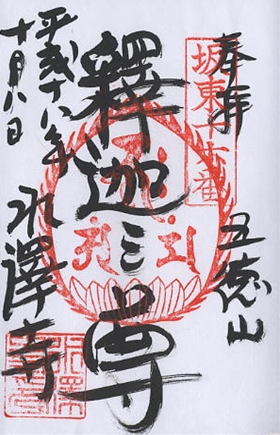 奉拝
坂東十六番
五徳山
釋迦三尊
水澤寺
平成十八年
十月八日